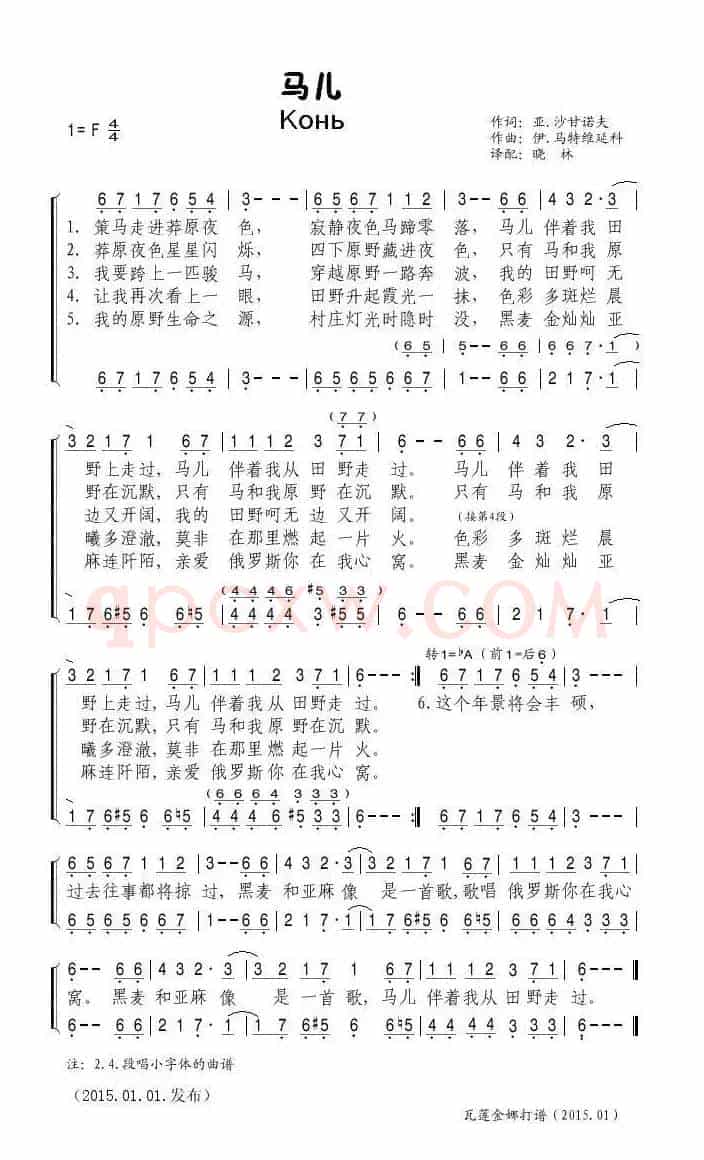 马儿
Конь
1= F 4/4
作词: 亚.沙甘诺夫
作曲: 伊.马特维延科
译配: 晓 林
6 7 1 7 6 5 4 | 3 - - - | 6 5 6 7 1 1 2 | 3 - - 6 6 | 4 3 2 · 3 |
1. 策马走进莽原夜 色, 寂静夜色马蹄零 落, 马儿 伴着我 田
2. 莽原夜色星星闪 烁, 四下原野藏进夜 色, 只有 马和我 原
3. 我要跨上一匹骏 马, 穿越原野一路奔 波, 我的 田野呵 无
4. 让我再次看上一 眼, 田野升起霞光一 抹, 色彩 多斑烂 晨
5. 我的原野生命之 源, 村庄灯光时隐时 没, 黑麦 金灿灿 亚
(6 5 | 5 - - 6 6 | 6 6 7 · 1)
6 7 1 7 6 5 4 | 3 - - - | 6 5 6 5 6 6 7 | 1 - - 6 6 | 2 1 7 · 1
(7 7)
3 2 1 7 1 6 7 | 1 1 1 2 3 7 1 | 6 - - 6 6 | 4 3 2 · 3
野上走过, 马儿 伴着我从 田野走 过。 马儿 伴着我 田
野在沉默, 只有 马和我原 野在沉 默。 只有 马和我 原
边又开阔, 我的 田野呵无 边又开 阔。 (接第4段)
曦多澄澈, 莫非 在那里燃 起一片 火。 色彩 多斑烂 晨
麻连阡陌, 亲爱 俄罗斯你 在我心 窝。 黑麦 金灿灿 亚
(4 4 4 6 #5 3 3)
1 7 6 #5 6 6 #5 | 4 4 4 4 3 #5 5 | 6 - - 6 6 | 2 1 7 · 1
转1=♭A (前1=后6)
3 2 1 7 1 6 7 | 1 1 1 2 3 7 1 | 6 - - - :‖ 6 7 1 7 6 5 4 | 3 - - -
野上走过, 马儿 伴着我从 田野走 过。 6. 这个年景将会丰 硕,
野在沉默, 只有 马和我原 野在沉 默。
曦多澄澈, 莫非 在那里燃 起一片 火。
麻连阡陌, 亲爱 俄罗斯你 在我心 窝。
(6 6 6 4 3 3 3)
1 7 6 #5 6 6 ♮5 | 4 4 4 6 #5 3 3 | 6 - - - :‖ 6 7 1 7 6 5 4 | 3 - - -
6 5 6 7 1 1 2 | 3 - - 6 6 | 4 3 2 · 3 | 3 2 1 7 1 6 7 | 1 1 1 2 3 7 1
过去往事都将掠 过, 黑麦 和亚麻 像 是一首歌, 歌唱 俄罗斯你在我心
6 5 6 5 6 6 7 | 1 - - 6 6 | 2 1 7 · 1 | 1 7 6 #5 6 6 ♮5 | 4 4 4 4 3 3 3
6 - - 6 6 | 4 3 2 · 3 | 3 2 1 7 1 6 7 | 1 1 1 2 3 7 1 | 6 - - - ‖
窝。 黑麦 和亚麻 像 是一首歌, 马儿 伴着我从 田野走 过。
6 - - 6 6 | 2 1 7 · 1 | 1 7 6 #5 6 6 ♮5 | 4 4 4 4 3 3 3 | 6 - - - ‖
注: 2.4.段唱小字体的曲谱
(2015.01.01.发布)
瓦莲金娜打谱(2015.01)
qpcxw.com